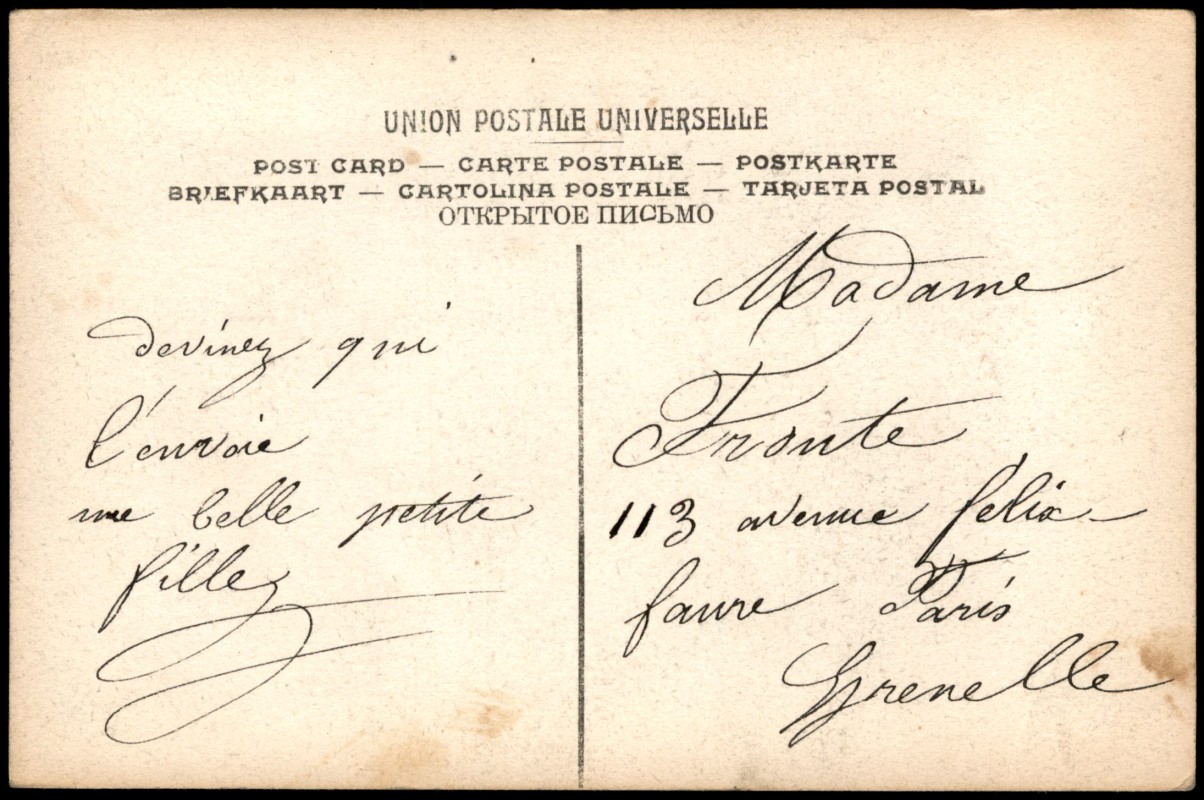 UNION POSTALE UNIVERSELLE
POST CARD — CARTE POSTALE — POSTKARTE
BRIEFKAART — CARTOLINA POSTALE — TARJETA POSTAL
ОТКРЫТОЕ ПИСЬМО
devinez qui
l'envoie
une belle petite
fille
Madame
Fronte
113 avenue felix
faure Paris
Grenelle